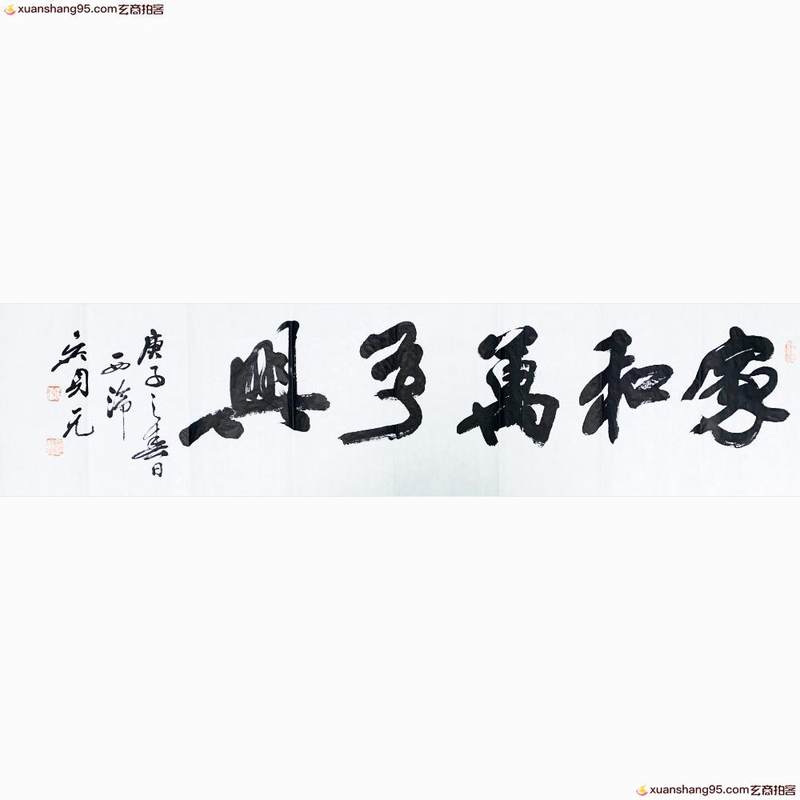 xuanshang95.com玄商拍客
家和萬事興
庚子之春日
西
xuanshang95.com玄商拍客